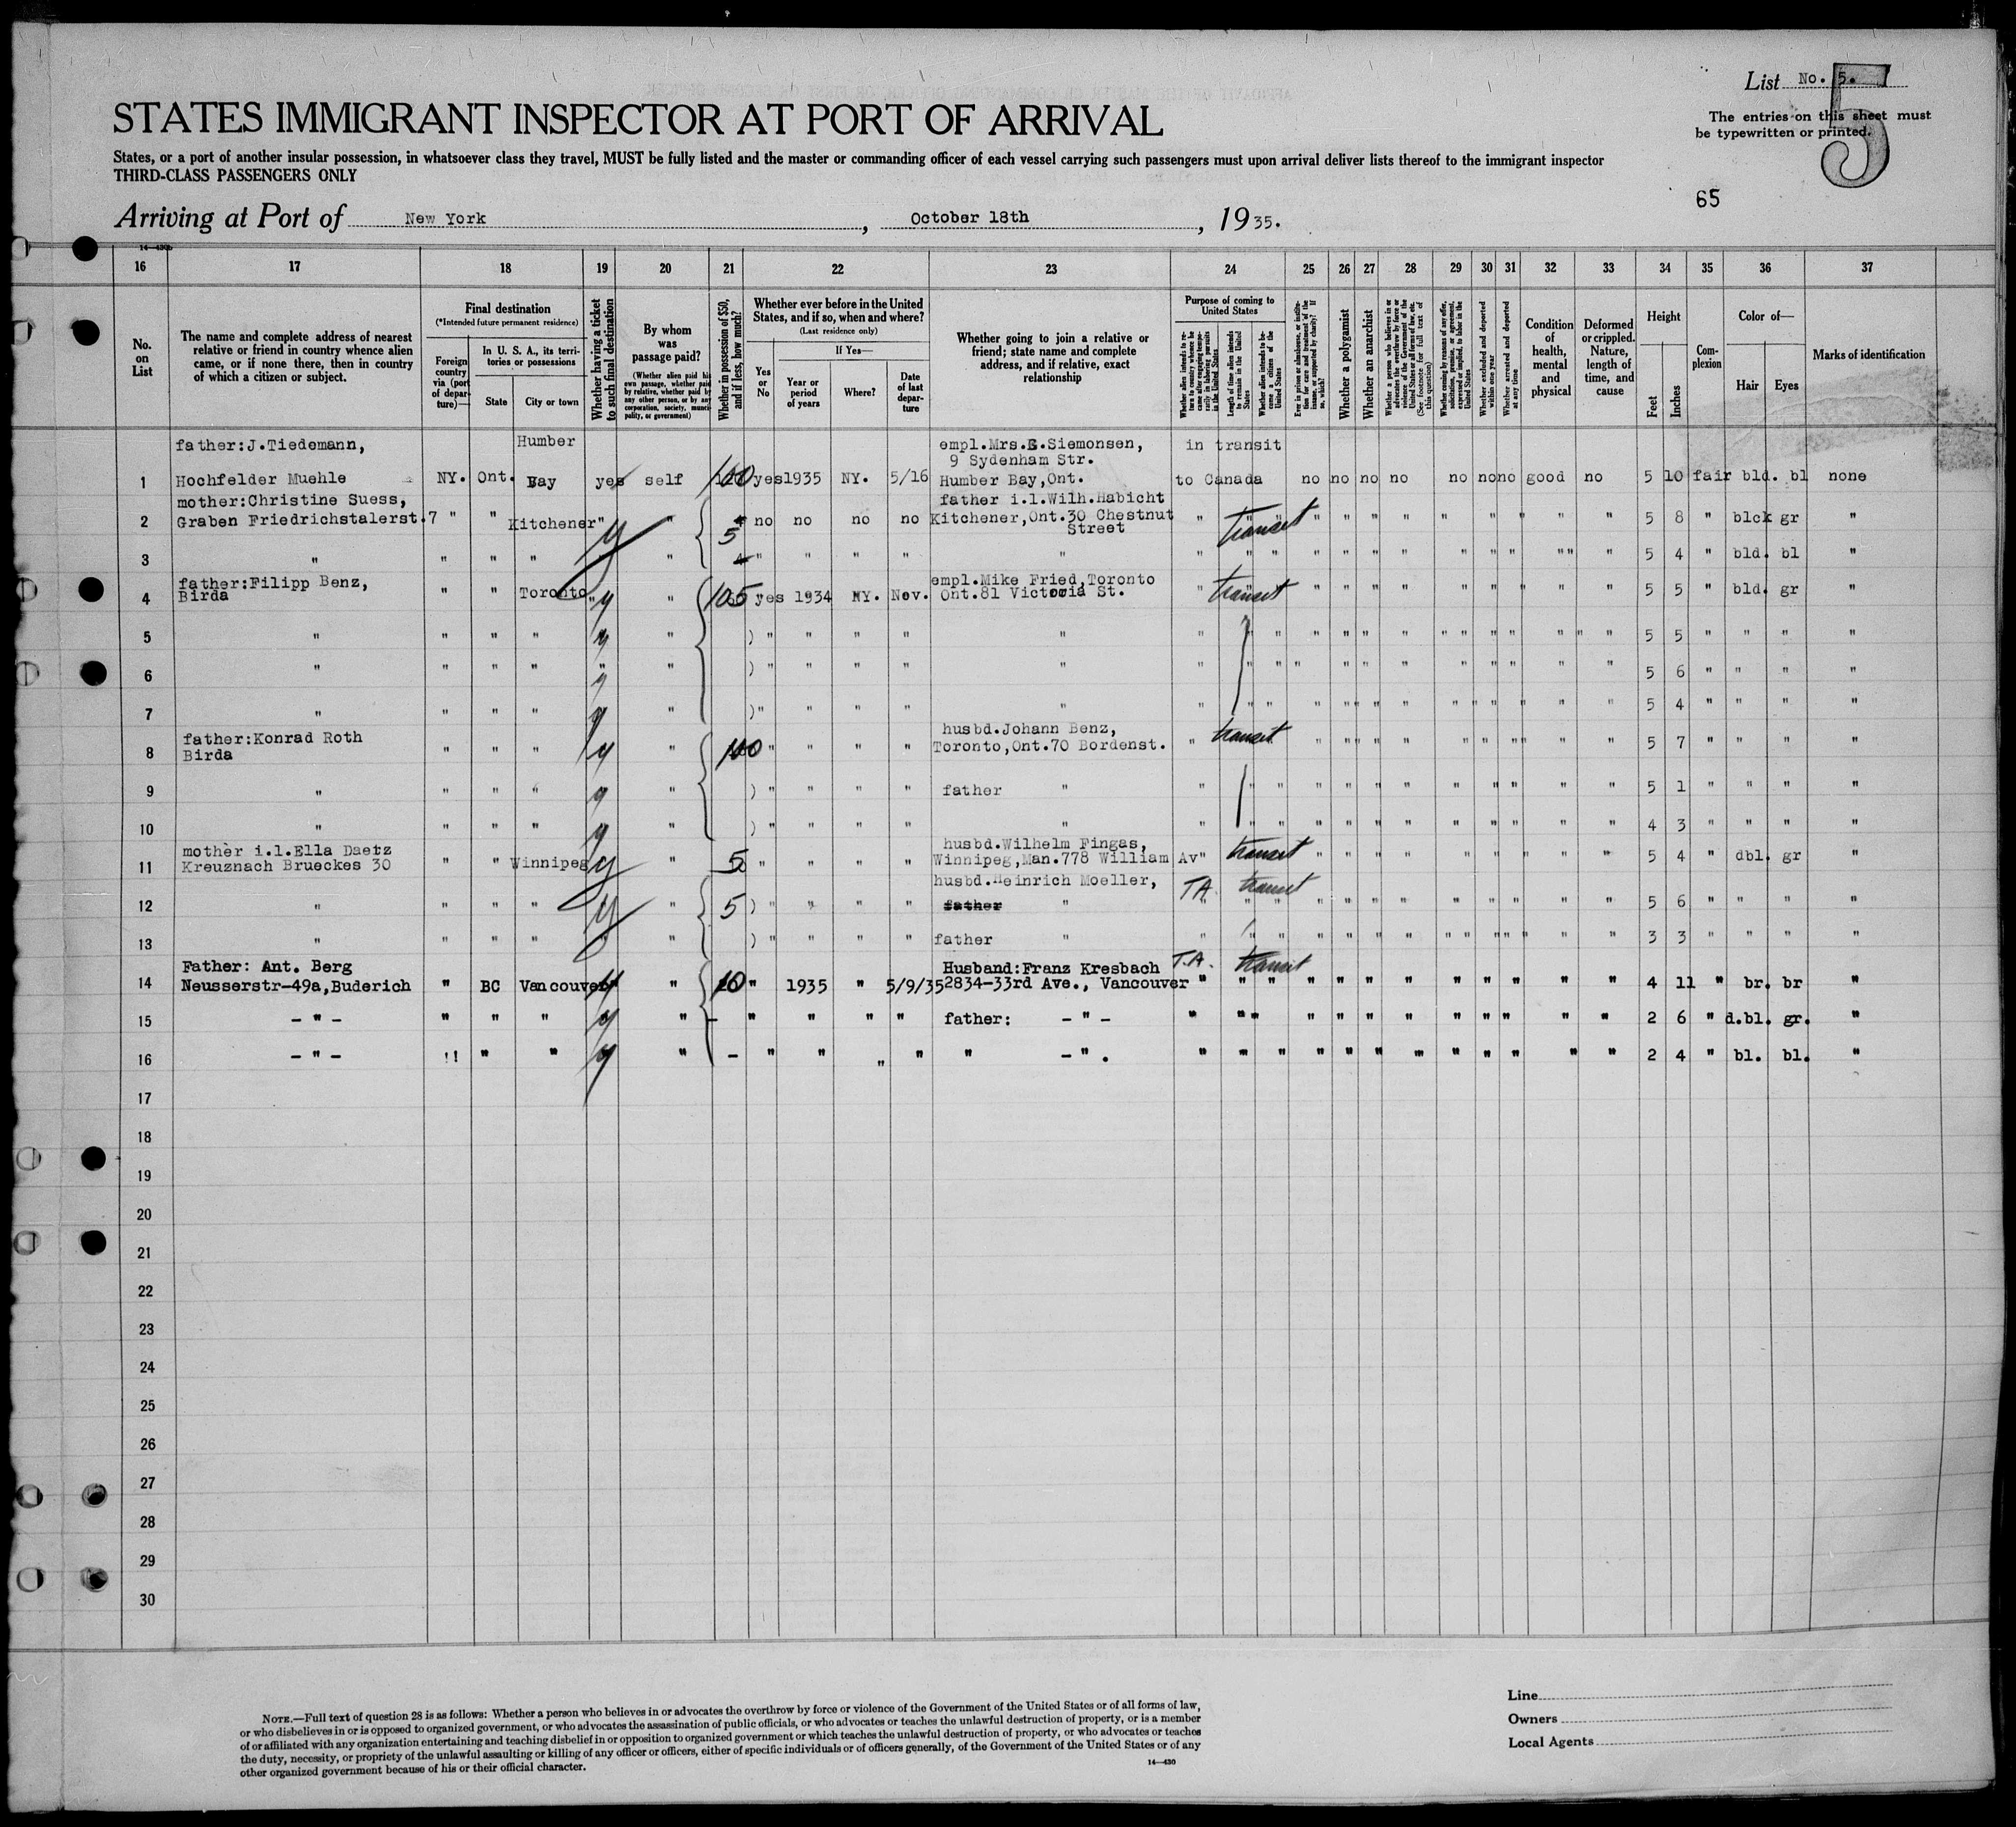 List No. 5.
5
The entries on this sheet must
be typewritten or printed.
STATES IMMIGRANT INSPECTOR AT PORT OF ARRIVAL
States, or a port of another insular possession, in whatsoever class they travel, MUST be fully listed and the master or commanding officer of each vessel carrying such passengers must upon arrival deliver lists thereof to the immigrant inspector
THIRD-CLASS PASSENGERS ONLY
65
Arriving at Port of New York, October 18th, 1935.
14—430b
16 17 18 19 20 21 22 23 24 25 26 27 28 29 30 31 32 33 34 35 36 37
No. on List
The name and complete address of nearest relative or friend in country whence alien came, or if none there, then in country of which a citizen or subject.
Final destination
(*Intended future permanent residence)
Foreign country via (port of departure)—
In U. S. A., its territories or possessions
State
City or town
Whether having a ticket to such final destination
By whom was passage paid?
(Whether alien paid his own passage, whether paid by relative, whether paid by any other person, or by any corporation, society, municipality, or government)
Whether in possession of $50, and if less, how much?
Whether ever before in the United States, and if so, when and where?
(Last residence only)
Yes or No
If Yes—
Year or period of years
Where?
Date of last departure
Whether going to join a relative or friend; state name and complete address, and if relative, exact relationship
Purpose of coming to United States
Whether alien intends to return to country whence he came after engaging temporarily in laboring pursuits in the United States
Length of time alien intends to remain in the United States
Whether alien intends to become a citizen of the United States
Ever in prison or almshouse, or institution for care and treatment of the insane, or supported by charity? If so, which?
Whether a polygamist
Whether an anarchist
Whether a person who believes in or advocates the overthrow by force or violence of the Government of the United States or all forms of law, etc. (See footnote for full text of this question)
Whether coming by reasons of any offer, solicitation, promise, or agreement, expressed or implied, to labor in the United States
Whether excluded and deported within one year
Whether arrested and deported at any time
Condition of health, mental and physical
Deformed or crippled. Nature, length of time, and cause
Height
Feet
Inches
Complexion
Color of—
Hair
Eyes
Marks of identification
father:J.Tiedemann, Humber empl.Mrs.E.Siemonsen, in transit
9 Sydenham Str.
1 Hochfelder Muehle NY. Ont. Bay yes self 100 yes 1935 NY. 5/16 Humber Bay,Ont. to Canada no no no no no no no good no 5 10 fair bld. bl none
mother:Christine Suess, father i.l.Wilh.Habicht
2 Graben Friedrichstalerst.7 " " Kitchener " y " 5 no no no no Kitchener,Ont.30 Chestnut " transit " " " " " " " " " 5 8 " blck gr "
Street
3 " " " " " " " " " " " " " " " " " " " " " " 5 4 " bld. bl "
father:Filipp Benz, empl.Mike Fried,Toronto
4 Birda " " Toronto " y " 105 yes 1934 NY. Nov. Ont.81 Victoria St. " transit " " " " " " " " " 5 5 " bld. gr "
5 " " " " y " ) " " " " " " " " " " " " " " " " " 5 5 " " " "
6 " " " " y " ) " " " " " " " " " " " " " " " " " 5 6 " " " "
7 " " " " y " ) " " " " " " " " " " " " " " " " " 5 4 " " " "
father:Konrad Roth husbd.Johann Benz,
8 Birda " " " y " 100 " " " " Toronto,Ont.70 Bordenst. " transit " " " " " " " " " 5 7 " " " "
9 " " " " y " ) " " " " father " " " " " " " " " " " " " 5 1 " " " "
10 " " " " y " ) " " " " " " " " " " " " " " " " " 4 3 " " " "
mother i.l.Ella Daetz husbd.Wilhelm Fingas,
11 Kreuznach Brueckes 30 " " Winnipeg y " 5 " " " " Winnipeg,Man.778 William Av " transit " " " " " " " " " 5 4 " dbl. gr "
husbd.Heinrich Moeller, T.A. transit
12 " " " " y " 5 ) " " " " father " " " " " " " " " " " " " 5 6 " " " "
13 " " " " " " ) " " " " father " " " " " " " " " " " " " 3 3 " " " "
Father: Ant. Berg Husband:Franz Kresbach T.A. transit
14 Neusserstr-49a,Buderich " BC Vancouver y " 10 " 1935 " 5/9/35 2834-33rd Ave., Vancouver " " " " " " " " " " " " 4 11 " br. br "
15 - " - " " " y " - " " " " father: - " - " " " " " " " " " " " " 2 6 " d.bl. gr. "
16 - " - " " " y " - " " " " " - " . " " " " " " " " " " " " 2 4 " bl. bl. "
17
18
19
20
21
22
23
24
25
26
27
28
29
30
NOTE.—Full text of question 28 is as follows: Whether a person who believes in or advocates the overthrow by force or violence of the Government of the United States or of all forms of law,
or who disbelieves in or is opposed to organized government, or who advocates the assassination of public officials, or who advocates or teaches the unlawful destruction of property, or is a member
of or affiliated with any organization entertaining and teaching disbelief in or opposition to organized government or which teaches the unlawful destruction of property, or who advocates or teaches
the duty, necessity, or propriety of the unlawful assaulting or killing of any officer or officers, either of specific individuals or of officers generally, of the Government of the United States or of any
other organized government because of his or their official character.
14—430
Line
Owners
Local Agents